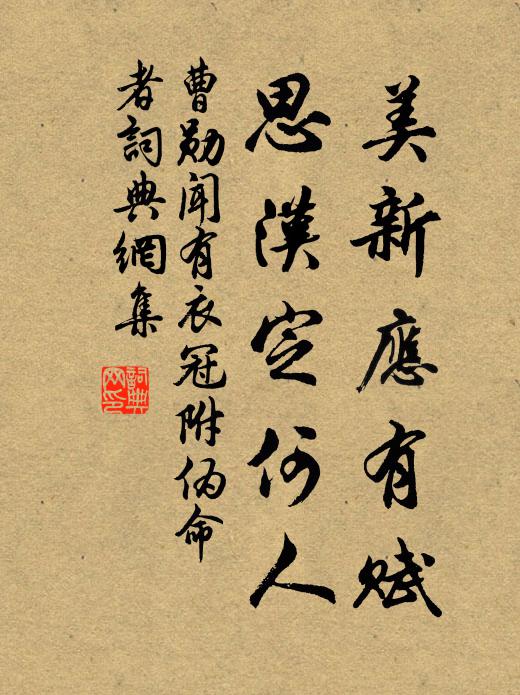 美新應有賦
思漢定何人
曹勛聞有衣冠附偽命
者詞典網集
詞典
网印